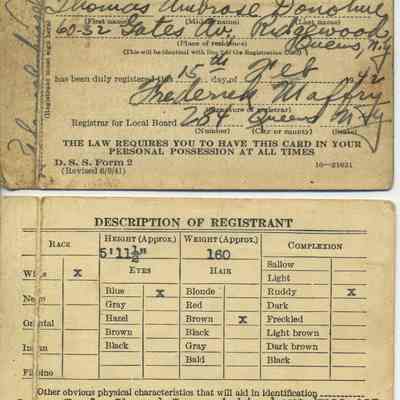 Thomas Ambrose Donohue
(First name) (Middle name) (Last name)
60-32 Gates Av. Ridgewood,
Queens, N.Y.
(Place of residence)
(This will be identical with line 2 of the Registration Card)
has been duly registered this 15th day of Feb 42
Frederick
(Signature of registrar)
Registrar for Local Board 264 Queens N.Y.
(Number) (City or county) (State)
THE LAW REQUIRES YOU TO HAVE THIS CARD IN YOUR
PERSONAL POSSESSION AT ALL TIMES
D. S. S. Form 2
(Revised 6/9/41) 16—21631
(Registrant must sign here)
DESCRIPTION OF REGISTRANT
RACE HEIGHT (Approx.) WEIGHT (Approx.) COMPLEXION
5'11½" 160
EYES HAIR
Sallow
Light
White x Blue x Blonde Ruddy x
Gray Red Dark
Negro Hazel Brown x Freckled
Oriental Brown Black Light brown
Indian Black Gray Dark brown
Bald Black
Filipino
Other obvious physical characteristics that will aid in identification